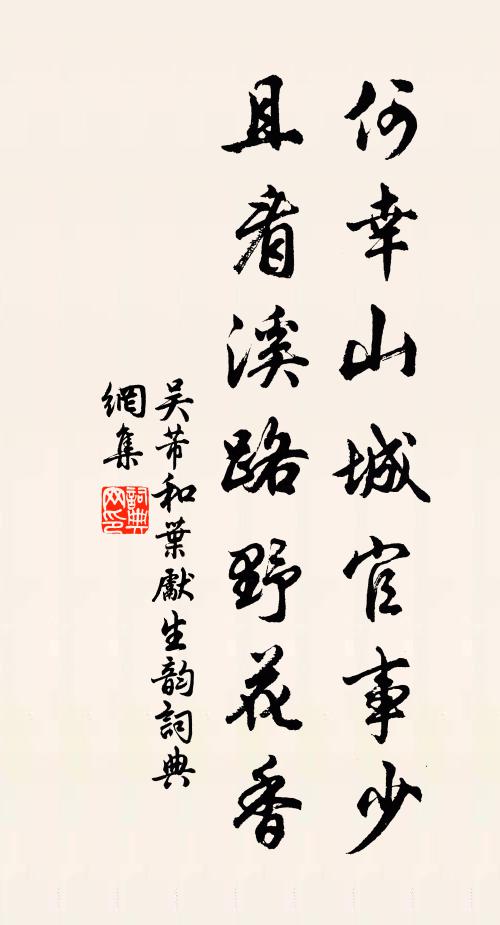 何幸山城官事少
且看溪路野花香
吴芾和葉獻生韵詞典
網集
詞典網印